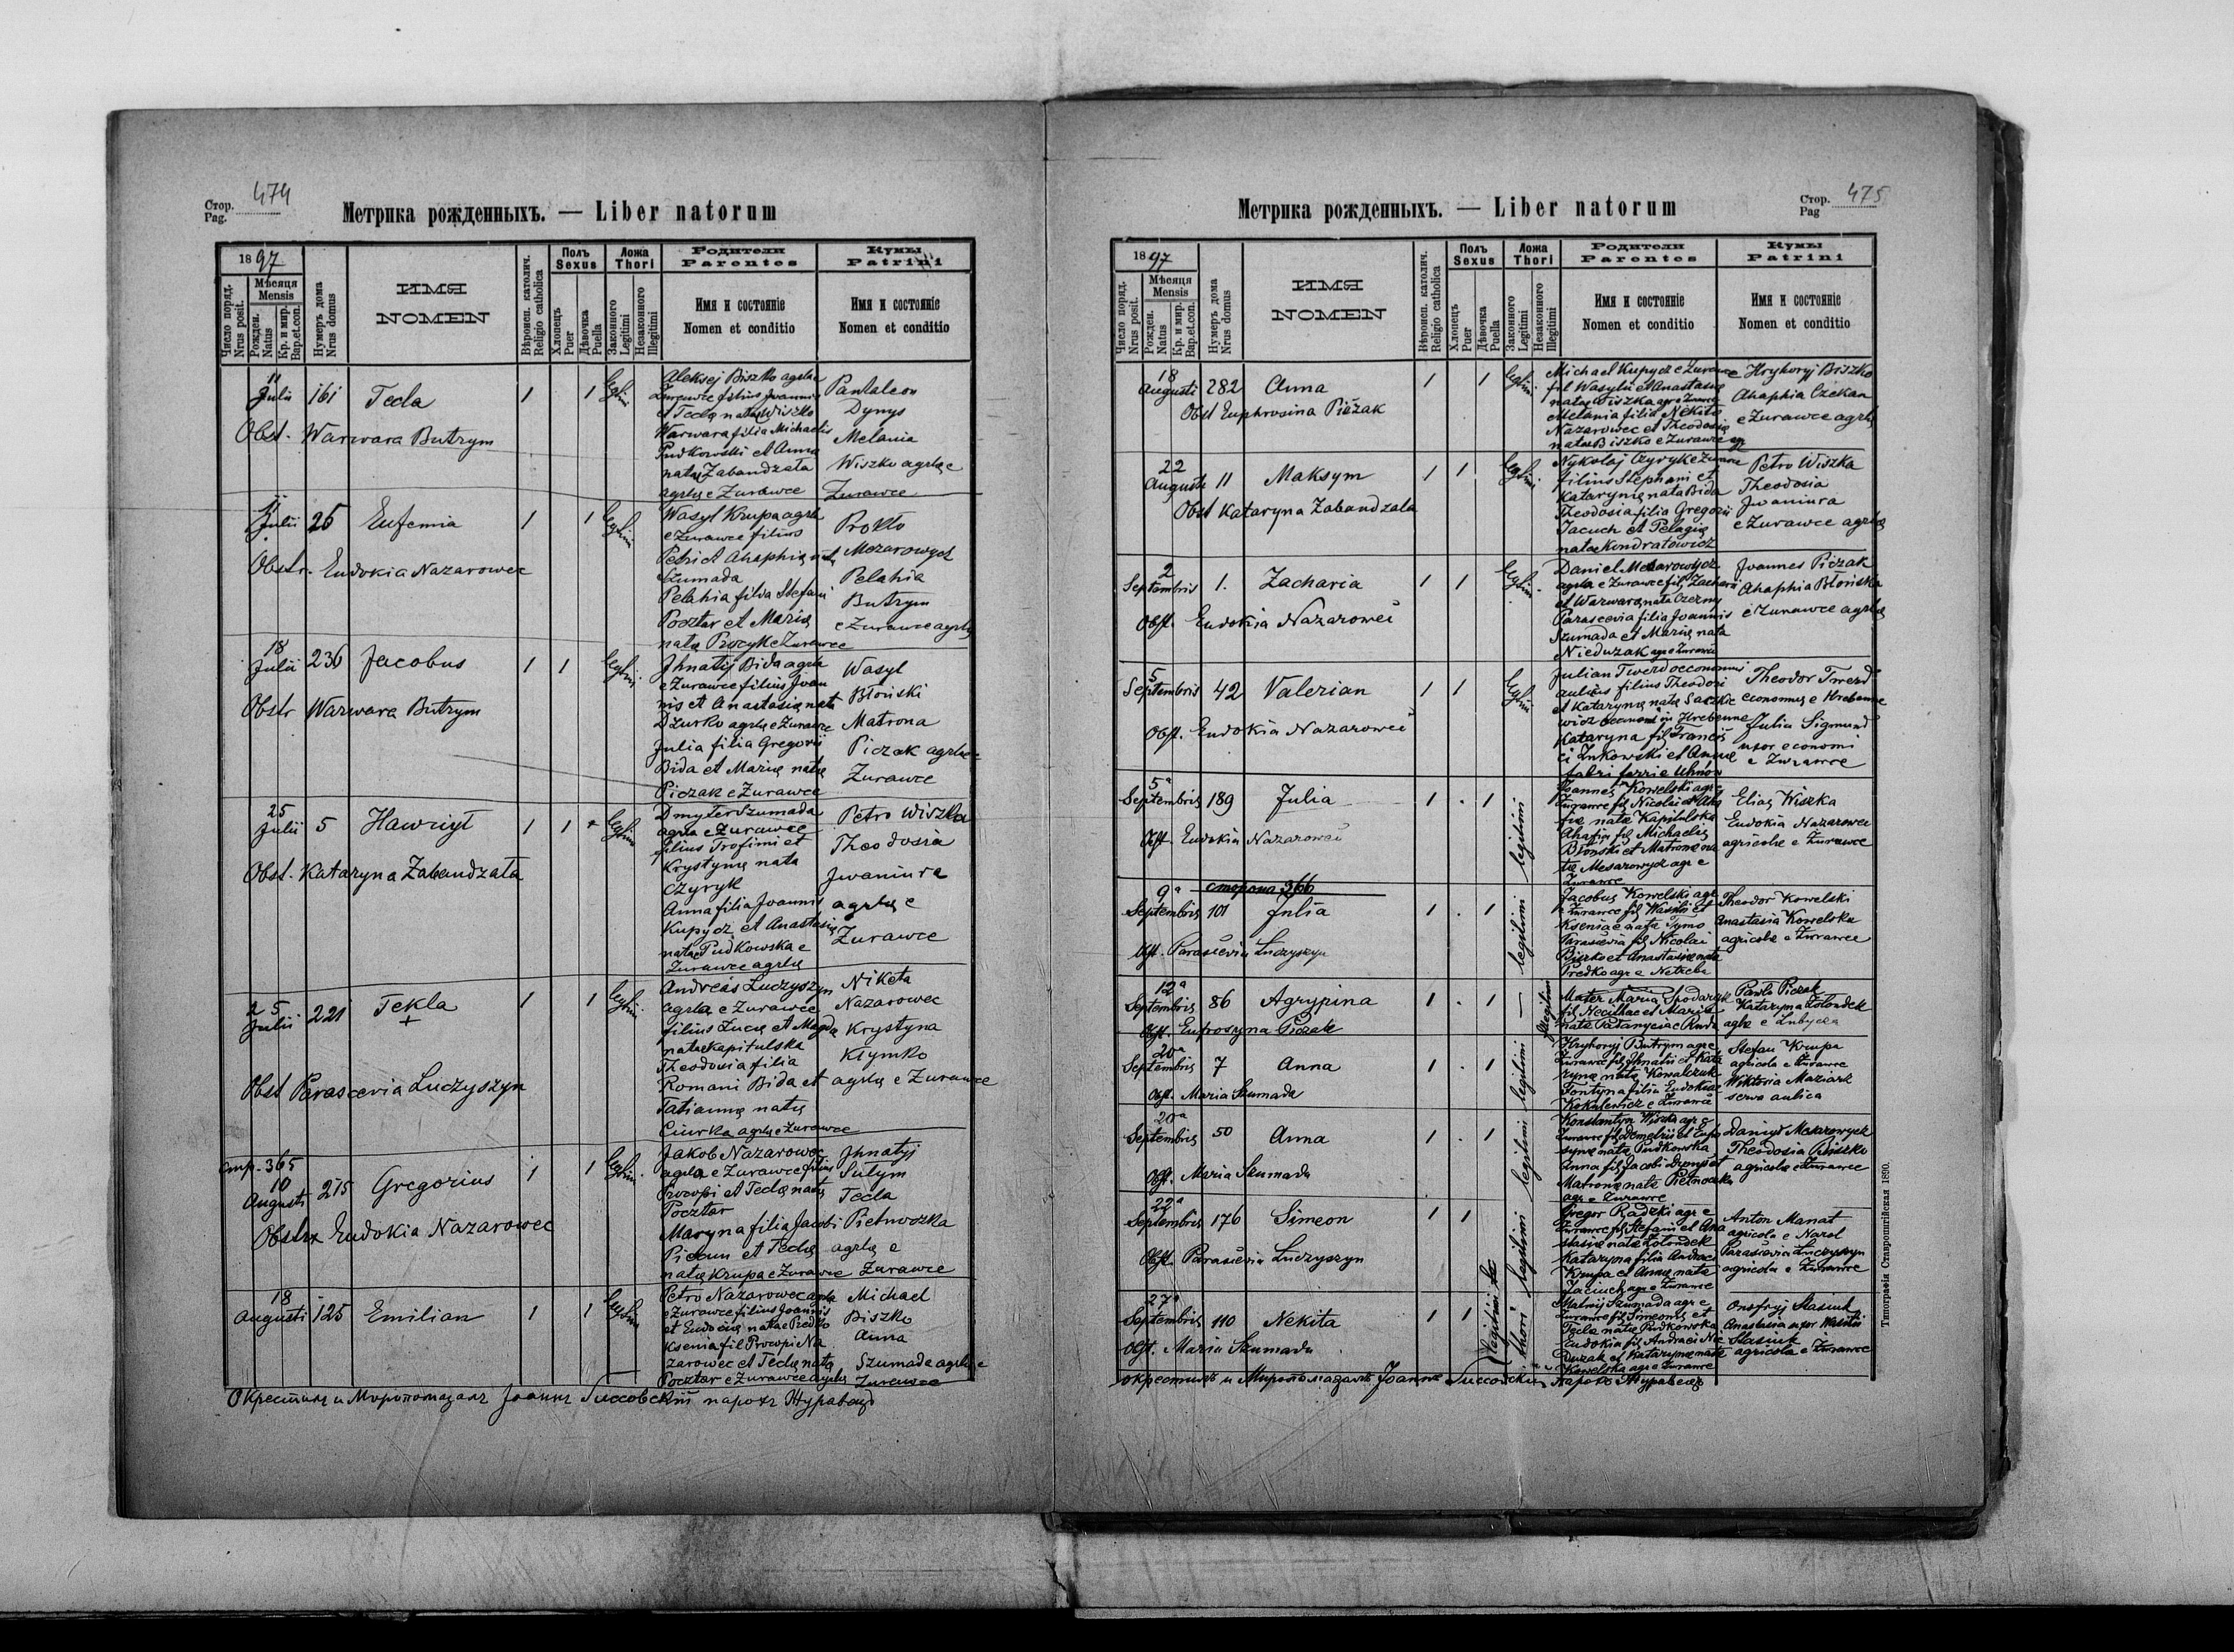 Стор.
Pag.
474
Метрика рожденныхъ. — Liber natorum
1897
Число поряд.
Nrus posit.
Мѣсяця
Mensis
Рожден.
Natus
Кр. и мир.
Bap.et.con.
Нумеръ дома
Nrus domus
ИМЯ
NOMEN
Вѣроисп. католич.
Religio catholica
Полъ
Sexus
Хлопецъ
Puer
Дѣвочка
Puella
Ложа
Thori
Законного
Legitimi
Незаконного
Illegitimi
Родители
Parentes
Имя и состояніе
Nomen et conditio
Кумы
Patrini
Имя и состояніе
Nomen et conditio
11
Julii 161 Tecla 1 1
Obst. Warwara Butrym
Aleksej Biszko agrla e
Zurawce filius Joannis
et Teclę natę Wiszko
Warwara filia Michaelis
Pudkowski et Anna
natę Zabandzała
agrlę e Zurawce
Pantaleon
Dynys
Melania
Wiszko agrlę e
Zurawce
11
Julii 25 Eufemia 1 1
Obstr. Eudokia Nazarowec
Wasyl Krupa agrla
e Zurawce filius
Petri et Ahaphię natę
Szumada
Pelahia filia Stefani
Pocztar et Marię
natę Procyk e Zurawce
Prokło
Mozarowycz
Pelahia
Butrym
e Zurawce agrlę
18
Julii 236 Jacobus 1 1
Obstr Warwara Butrym
Jhnatij Bida agrla
e Zurawce filius Joan
nis et Anastasię natę
Dzurko agrlę e Zurawce
Julia filia Gregorii
Bida et Marię natę
Piczak e Zurawce
Wasyl
Błoński
Matrona
Piczak agrlę e
Zurawce
25
Julii 5 Hawryił 1 1
Obst. Kataryna Zabandzała
Dmyter Szumada
agrla e Zurawce
filius Trofimi et
Krystynę nata
Czyryk
Anna filia Joannis
Kupycz et Anastasię
natę Pudkowska e
Zurawce agrlę
Petro Wiszka
Theodosia
Jwaniura
agrlę e
Zurawce
25
Julii 221 Tekla 1 1
+
Obst Parascevia Luczyszyn
Andreas Luczyszyn
agrla e Zurawce
filius Lucę et Magda
natę Kapitulska
Theodosia filia
Romani Bida et
Tatiannę natę
Ciurka agrlę e Zurawce
Niketa
Nazarowec
Krystyna
Kłymko
agrlę e Zurawce
стр. 365
10
Augusti 215 Gregorius 1 1
Obstrx Eudokia Nazarowec
Jakob Nazarowec
agrla e Zurawce filius
Procopi et Teclę natę
Pocztar
Maryna filia Jacobi
Piczun et Teclę
natę Krupa e Zurawce
Jhnatij
Sutym
Tecla
Pietnoczka
agrlę e
Zurawce
18
Augusti 125 Emilian 1 1
Petro Nazarowec agrla
e Zurawce filius Joannis
et Eudocię natae Predko
Ksenia fil Procopi Na
zarowec et Teclę natę
Pocztar e Zurawce agrlę
Michael
Biszko
Anna
Szumada agrlę e
Zurawce
Окрестилъ и Миропомазалъ Іоаннъ парохъ Журавецъ
Метрика рожденныхъ. — Liber natorum
Стор.
Pag
475
1897
Число поряд.
Nrus posit.
Мѣсяця
Mensis
Рожден.
Natus
Кр. и мир.
Bap.et.con.
Нумеръ дома
Nrus domus
ИМЯ
NOMEN
Вѣроисп. католич.
Religio catholica
Полъ
Sexus
Хлопецъ
Puer
Дѣвочка
Puella
Ложа
Thori
Законного
Legitimi
Незаконного
Illegitimi
Родители
Parentes
Имя и состояніе
Nomen et conditio
Кумы
Patrini
Имя и состояніе
Nomen et conditio
18
Augusti 282 Anna 1 1
Obst Euphrosina Piczak
Michael Kupycz e Zurawce
fil Wasylii et Anastasię
natae Wiszka agr e Zurawce
Melania filia Nekito
Nazarowec et Theodosię
natae Biszko e Zurawce
Hryhoryj Biszko
Ahaphia Czekan
e Zurawce agrlę
22
Augusti 11 Maksym 1 1
Obst Kataryna Zabandzala
Nykolaj Czyryk e Zurawce
filius Stephani et
Katarynę nata Bida
Theodosia filia Gregorii
Jacuch et Pelagię
natae Kondratowicz
Petro Wiszka
Theodosia
Jwaniura
e Zurawce agrlę
2
Septembris 1. Zacharia 1 1
Obst. Eudokia Nazarowec
Daniel Mozarowycz
agrla e Zurawce fil Zacharii
et Warwarę nata Czerny
Parascevia filia Joannis
Szumada et Marię nata
Niedużak agr e Zurawce
Joannes Piczak
Ahaphia Błońska
e Zurawce agrlę
5
Septembris 42 Valerian 1 1
Obst. Eudokia Nazarowec
Julian Twerd oeconomus
aulicus filius Theodori
et Katarynę natę Saczkie
wicz oeconomi in Hrebenne
Kataryna fil Francis
ci Żukowski et Annę
fabri ferri e Uhnów
Theodor Twerd
economus e Hrebenne
Julia Sigmund
uxor economi
e Zurawce
5ª
Septembris 189 Julia 1 . 1
Obst. Eudokia Nazarowec
legitimi
Joannes Kowelski agr e
Zurawce fil Nicolai et Aha
fię natę Kapitulska
Ahafia fil Michaelis
Błonski et Matronę na
tę Mesarowycz agr e
Zurawce
Elias Wiszka
Eudokia Nazarowec
agricolae e Zurawce
сторона 366
9ª
Septembris 101 Julia 1 . 1
Obst. Parascevia Luczyszyn
legitimi
Jacobus Kowelski agr
e Zurawce fil Wasilii et
Ksenia e natę Tymo
Parascevia fil Nicolai
Biszko et Anastasię nata
Predko agr e Netreba
Theodor Kowelski
Anastasia Kowelska
agricolae e Zurawce
12ª
Septembris 86 Agrypina 1 . 1 —
Obst. Eufrosyna Piczak
illegitimi
Mater Maria Spodaryk
Pawlo Piczak
Kataryna Zolondek
agrlae e Lubycza
20ª
Septembris 7 Anna 1 . 1
Obst. Maria Szumada
legitimi
Hryhoryj Butrym agr e
Zurawce fil Ihnatii et Kata
rynę natę Kowalczuk
Fontyna filia Eudokiae
Kokulewicz e Zurawce
Stefan Krupa
agricola e Zurawce
Wiktoria Maziark
serva aulica
20ª
Septembris 50 Anna 1 . 1
Obst. Maria Szumada
legitimi
Konstantyn Wiszka agr e
Zurawce fil Demetrii et Eufro
synę natę Pudkowska
Anna fil Jacobi Dynys et
Matronę natę Pietnoczka
agr e Zurawce
Daniył Mezarowycz
Theodosia Biszko
agricolae e Zurawce
22ª
Septembris 176 Simeon 1 1
Obst. Parascevia Luczyszyn
legitimi
Gregor Radzki agr e
Zurawce fil Stefani et Ana
stasię natę Zolondek
Kataryna filia Andreae
Krupa et Annę natę
Jaciuch agr e Zurawce
Anton Manat
agricola e Narol
Parascevia Luczyszyn
agricola e Zurawce
27ª
Septembris 110 Nekita 1 1
Obst. Maria Szumada
legitimi thori
Matwij Szumada agr e
Zurawce fil Simeonis et
Teclę natę Pudkowska
Eudokia fil Andreae Nie
duzak et Katarynę natę
Kowelska agr e Zurawce
Onofryj Stasiuk
Anastasia uxor Wasilii
Stasiuk
agricolae e Zurawce
окрестилъ и Миропомазалъ Іоаннъ парохъ Журавецъ
Типографія Ставропигійская 1890.